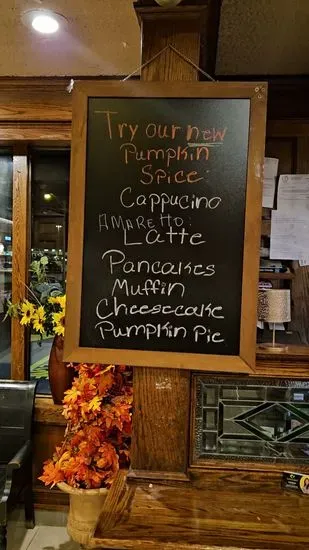 Try our new
Pumpkin
Spice:
Cappucino
AMARETTO:
Latte
Pancakes
Muffin
Cheesecake
Pumpkin Pie